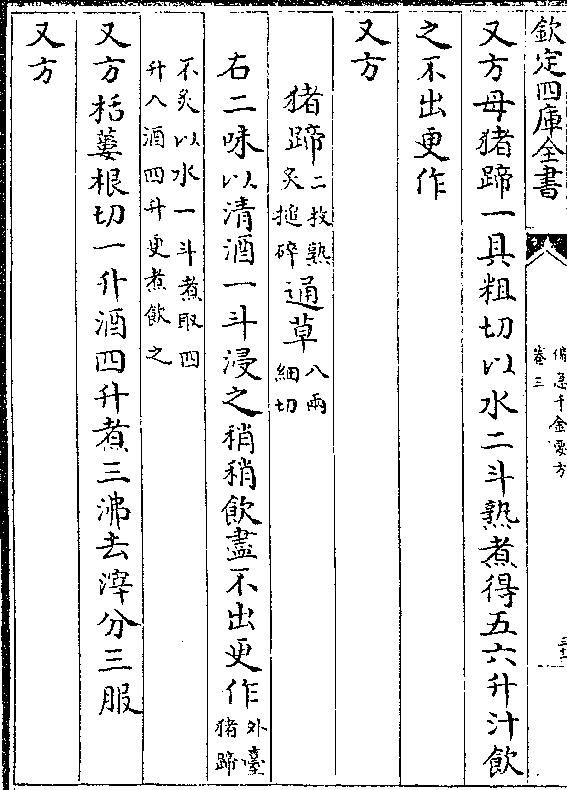 欽定四庫全書
備急千金要方
卷三
又方母猪蹄一具粗切以水二斗熟煮得五六升汁飲
之不出更作
又方
猪蹄二枚熟炙搥碎通草八兩細切
右二味以清酒一斗浸之稍稍飲盡不出更作外臺猪蹄
不炙以水一斗煮取四升入酒四升更煮飲之
又方栝蔞根切一升酒四升煮三沸去滓分三服
又方